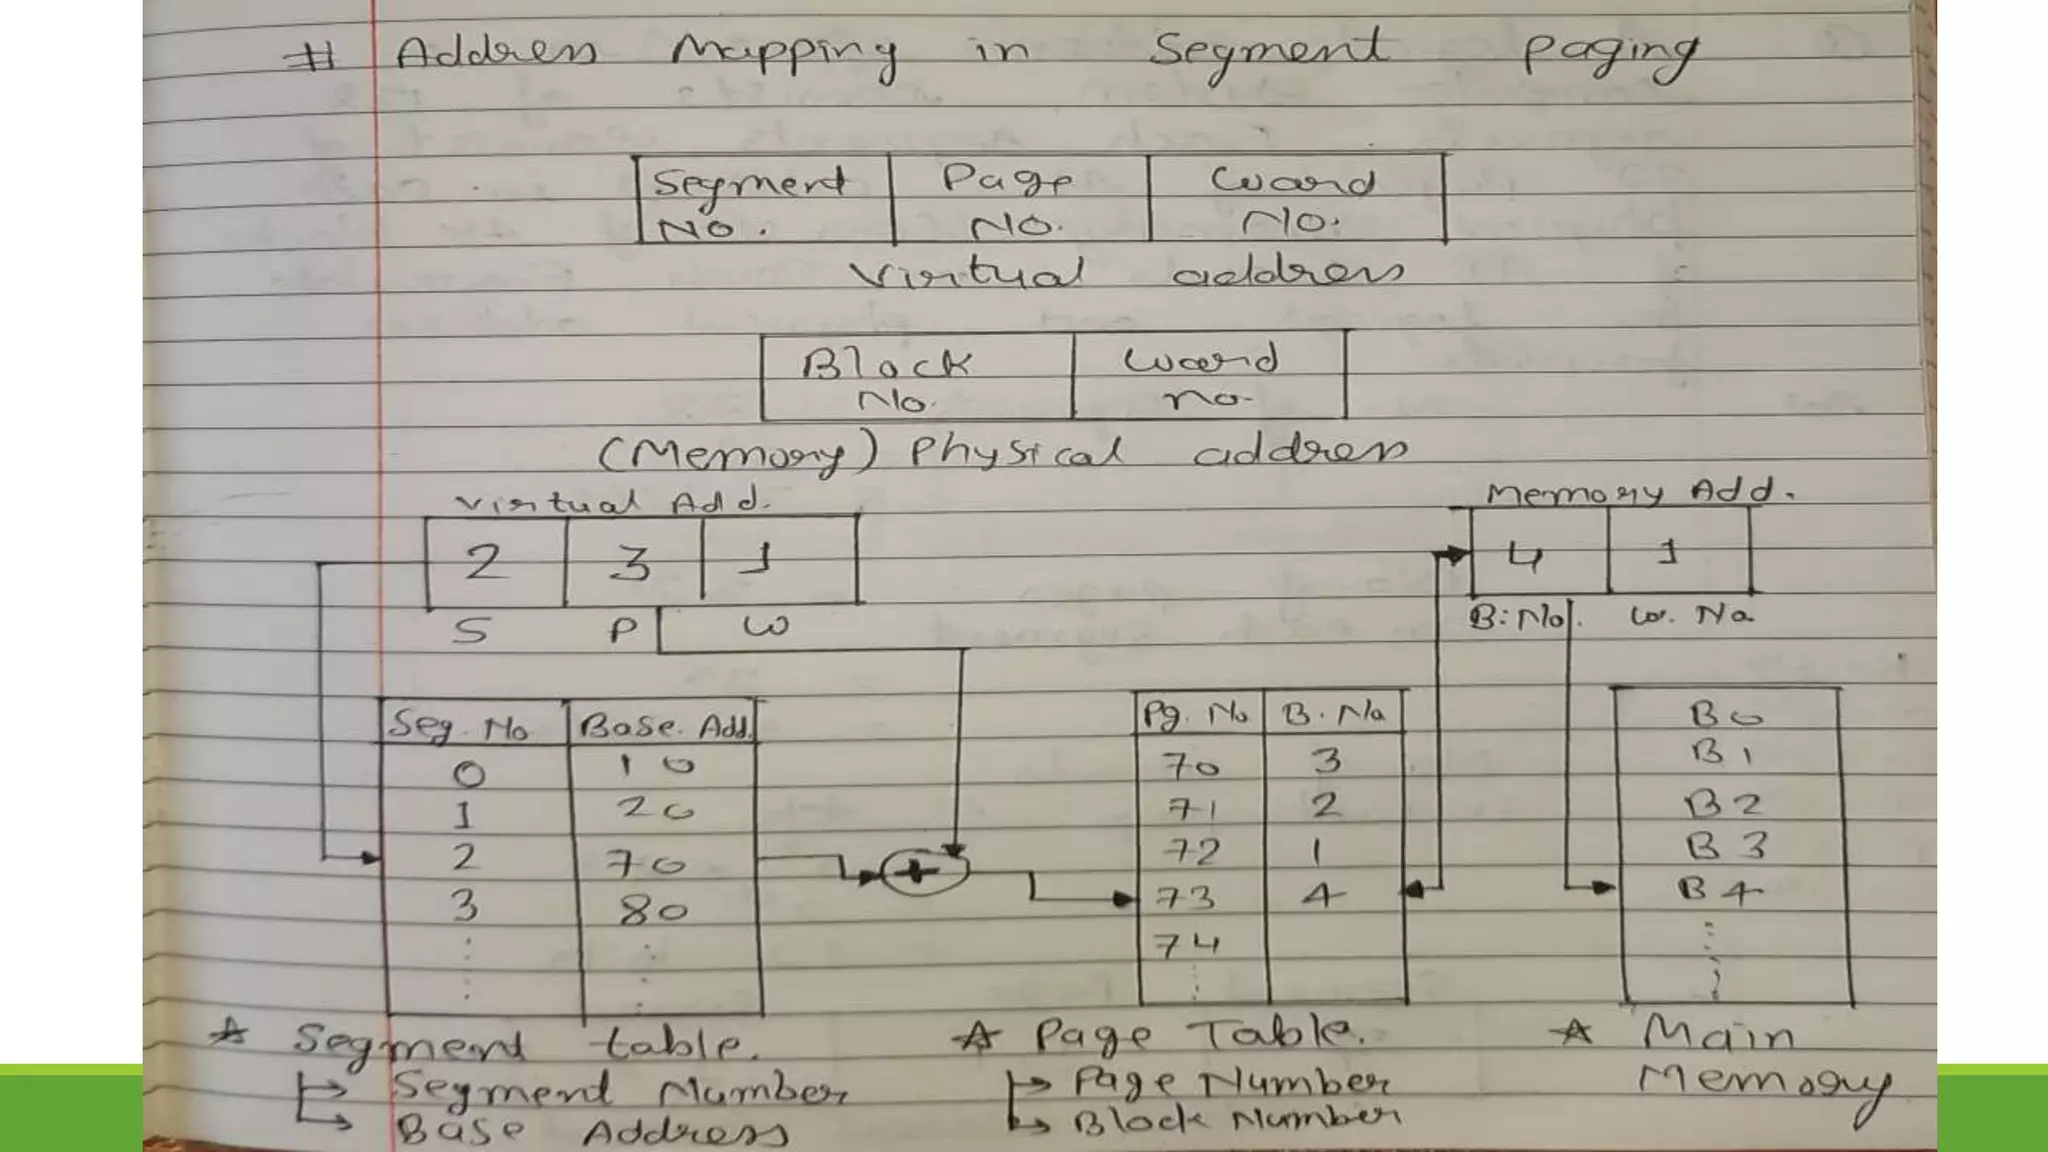 # Address Mapping in Segment Paging
Segment No. Page No. Word No.
Virtual address
Block No. Word no.
(Memory) Physical address
Virtual Add. Memory Add.
2 3 1 4 1
S P W B.No. W. No
Seg. No Base. Add. Pg. No B. No B0
0 10 70 3 B1
1 20 71 2 B2
2 70 + 72 1 B3
3 80 73 4 B4
74
☆ Segment table. ☆ Page Table. ☆ Main Memory
↳ Segment Number ↳ Page Number
↳ Base Address ↳ Block Number